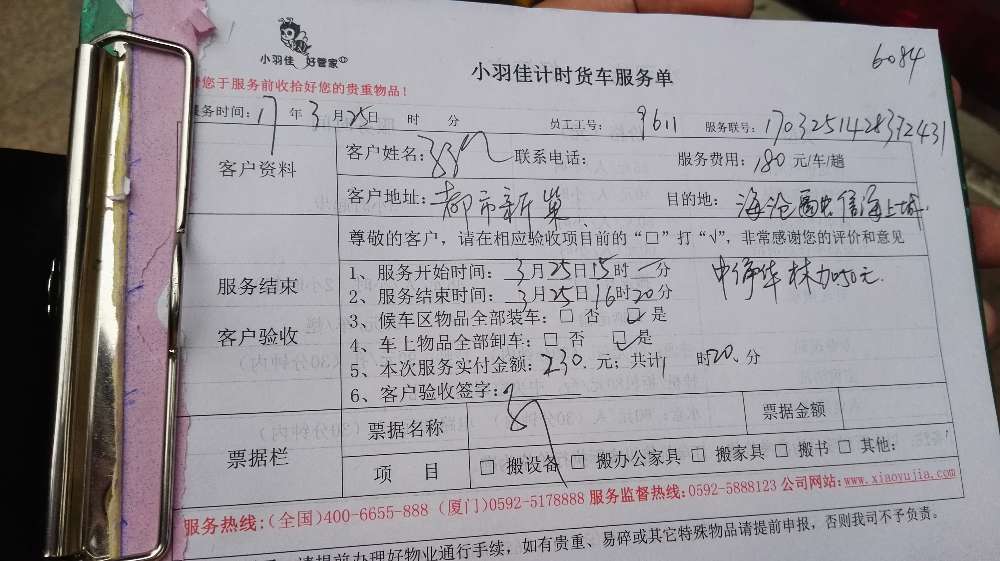 小羽佳 好管家
6084
小羽佳计时货车服务单
您于服务前收拾好您的贵重物品！
服务时间：17 年 3 月 25 日 时 分 员工工号： 9611 服务联号：
客户资料
客户姓名： 联系电话： 服务费用：180 元/车/趟
客户地址：都市新巢 目的地： 海沧 海上城
尊敬的客户，请在相应验收项目前的“□”打“√”，非常感谢您的评价和意见
服务结束
客户验收
1、服务开始时间：3月25日15时一分
2、服务结束时间：3月25日16时20分
3、候车区物品全部装车：□ 否 □ 是
4、车上物品全部卸车：□ 否 □ 是
5、本次服务实付金额：230 元；共计1 时20 分
6、客户验收签字：
票据栏
票据名称 票据金额
项 目 □ 搬设备 □ 搬办公家具 □ 搬家具 □ 搬书 □ 其他：
服务热线：（全国）400-6655-888（厦门）0592-5178888 服务监督热线：0592-5888123 公司网站：www.xiaoyujia.com
请提前办理好物业通行手续，如有贵重、易碎或其它特殊物品请提前申报，否则我司不予负责。